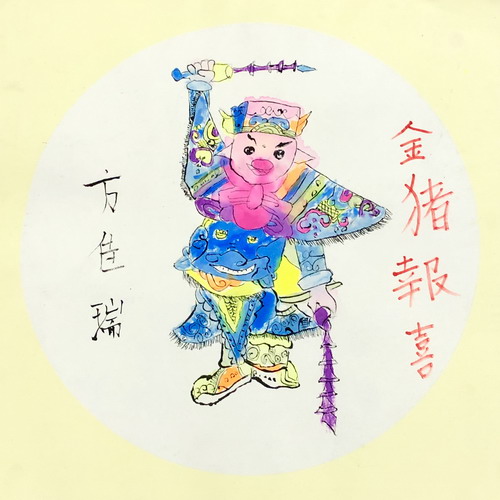 金猪報喜
方佳瑞